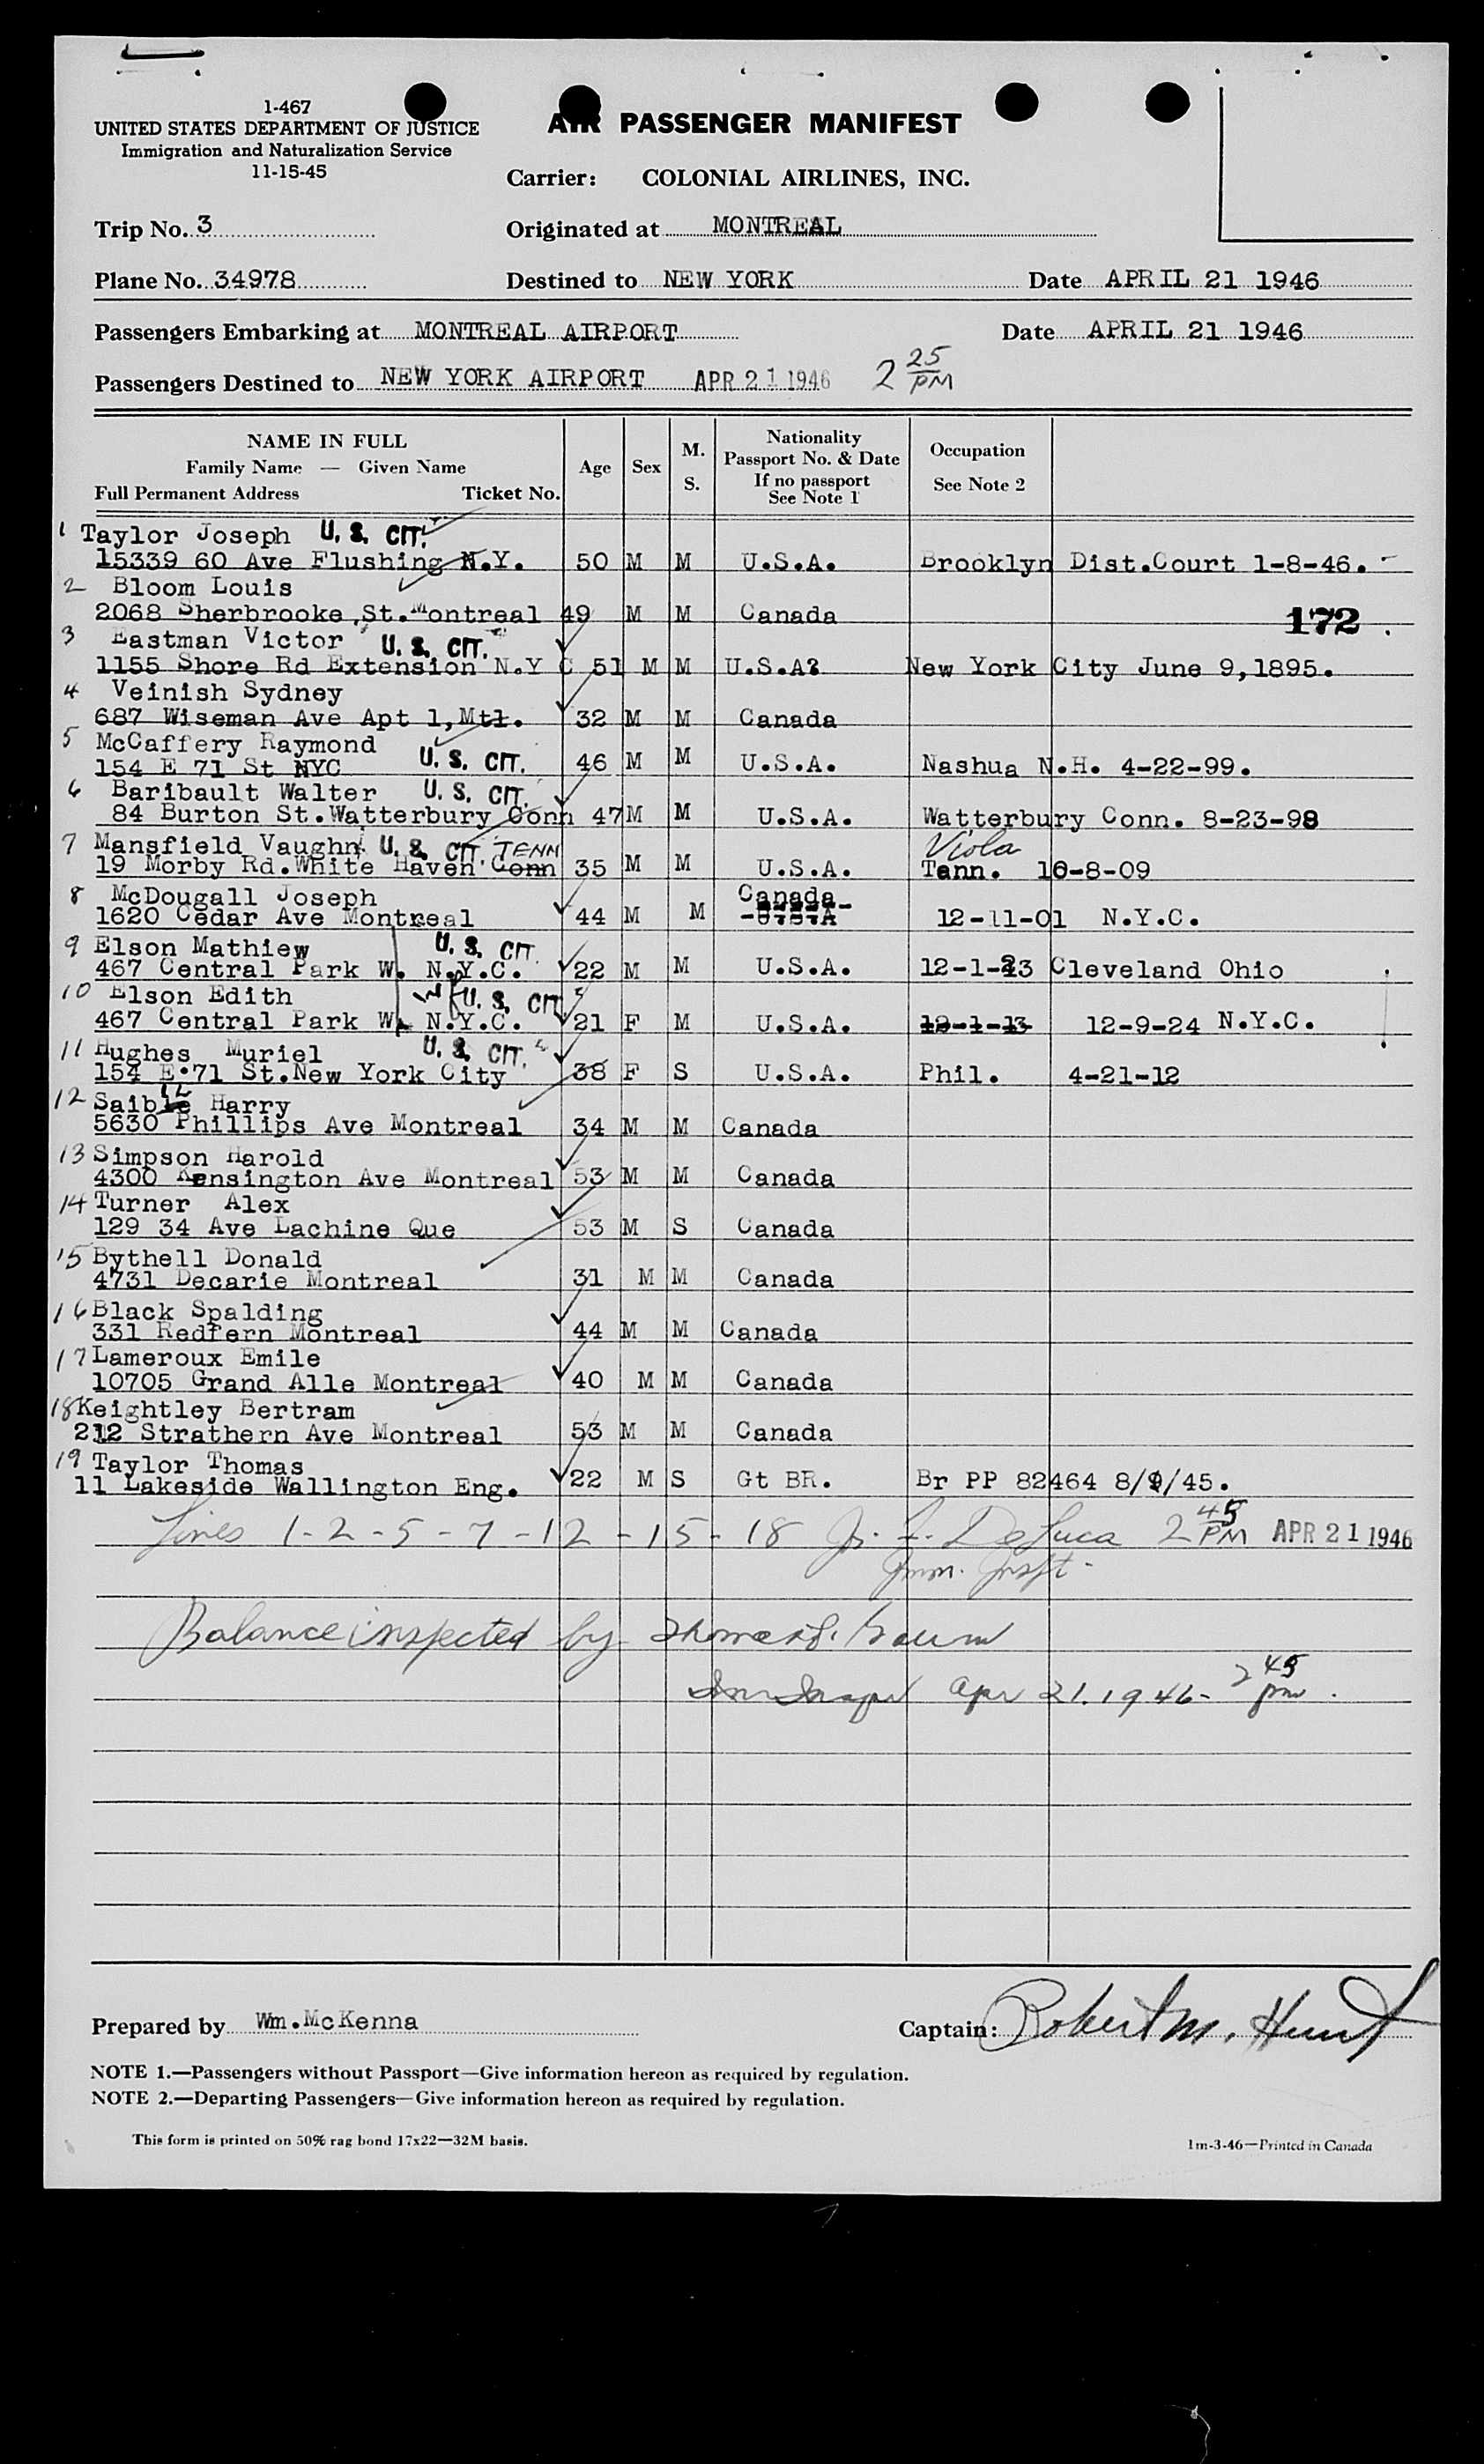 1-467
UNITED STATES DEPARTMENT OF JUSTICE
Immigration and Naturalization Service
11-15-45
AIR PASSENGER MANIFEST
Carrier: COLONIAL AIRLINES, INC.
Trip No. 3 Originated at MONTREAL
Plane No. 34978 Destined to NEW YORK Date APRIL 21 1946
Passengers Embarking at MONTREAL AIRPORT Date APRIL 21 1946
Passengers Destined to NEW YORK AIRPORT APR 21 1946 2 25 PM
NAME IN FULL
Family Name — Given Name
Full Permanent Address Ticket No.
Age Sex M. S.
Nationality
Passport No. & Date
If no passport
See Note 1
Occupation
See Note 2
1 Taylor Joseph U. S. CIT.
15339 60 Ave Flushing N.Y. 50 M M U.S.A. Brooklyn Dist.Court 1-8-46.
2 Bloom Louis
2068 Sherbrooke,St.Montreal 49 M M Canada 172
3 Eastman Victor U. S. CIT.
1155 Shore Rd Extension N.Y C 51 M M U.S.A? New York City June 9,1895.
4 Veinish Sydney
687 Wiseman Ave Apt 1,Mtl. 32 M M Canada
5 McCaffery Raymond
154 E 71 St NYC U. S. CIT. 46 M M U.S.A. Nashua N.H. 4-22-99.
6 Baribault Walter U. S. CIT.
84 Burton St.Watterbury Conn 47 M M U.S.A. Watterbury Conn. 8-23-98
7 Mansfield Vaughn U. S. CIT. TENN Viola
19 Morby Rd.White Haven Conn 35 M M U.S.A. Tann. 10-8-09
8 McDougall Joseph Canada
1620 Cedar Ave Montreal 44 M M U.S.A 12-11-01 N.Y.C.
9 Elson Mathiew U. S. CIT.
467 Central Park W. N.Y.C. 22 M M U.S.A. 12-1-23 Cleveland Ohio
10 Elson Edith U. S. CIT
467 Central Park W. N.Y.C. 21 F M U.S.A. 12-1-13 12-9-24 N.Y.C.
11 Hughes Muriel U. S. CIT.
154 E.71 St.New York City 38 F S U.S.A. Phil. 4-21-12
12 Saibil Harry
5630 Phillips Ave Montreal 34 M M Canada
13 Simpson Harold
4300 Kensington Ave Montreal 53 M M Canada
14 Turner Alex
129 34 Ave Lachine Que 53 M S Canada
15 Bythell Donald
4731 Decarie Montreal 31 M M Canada
16 Black Spalding
331 Redfern Montreal 44 M M Canada
17 Lameroux Emile
10705 Grand Alle Montreal 40 M M Canada
18 Keightley Bertram
212 Strathern Ave Montreal 53 M M Canada
19 Taylor Thomas
11 Lakeside Wallington Eng. 22 M S Gt BR. Br PP 82464 8/9/45.
Lines 1-2-5-7-12-15-18 DeLuca 2 45 PM APR 21 1946
Imm. Inspt-
Balance inspected by Thomas
Apr 21. 1946- 2 45 pm.
Prepared by Wm.McKenna Captain: Robert M. Hunt
NOTE 1.—Passengers without Passport—Give information hereon as required by regulation.
NOTE 2.—Departing Passengers—Give information hereon as required by regulation.
This form is printed on 50% rag bond 17x22—32M basis. 1m-3-46—Printed in Canada